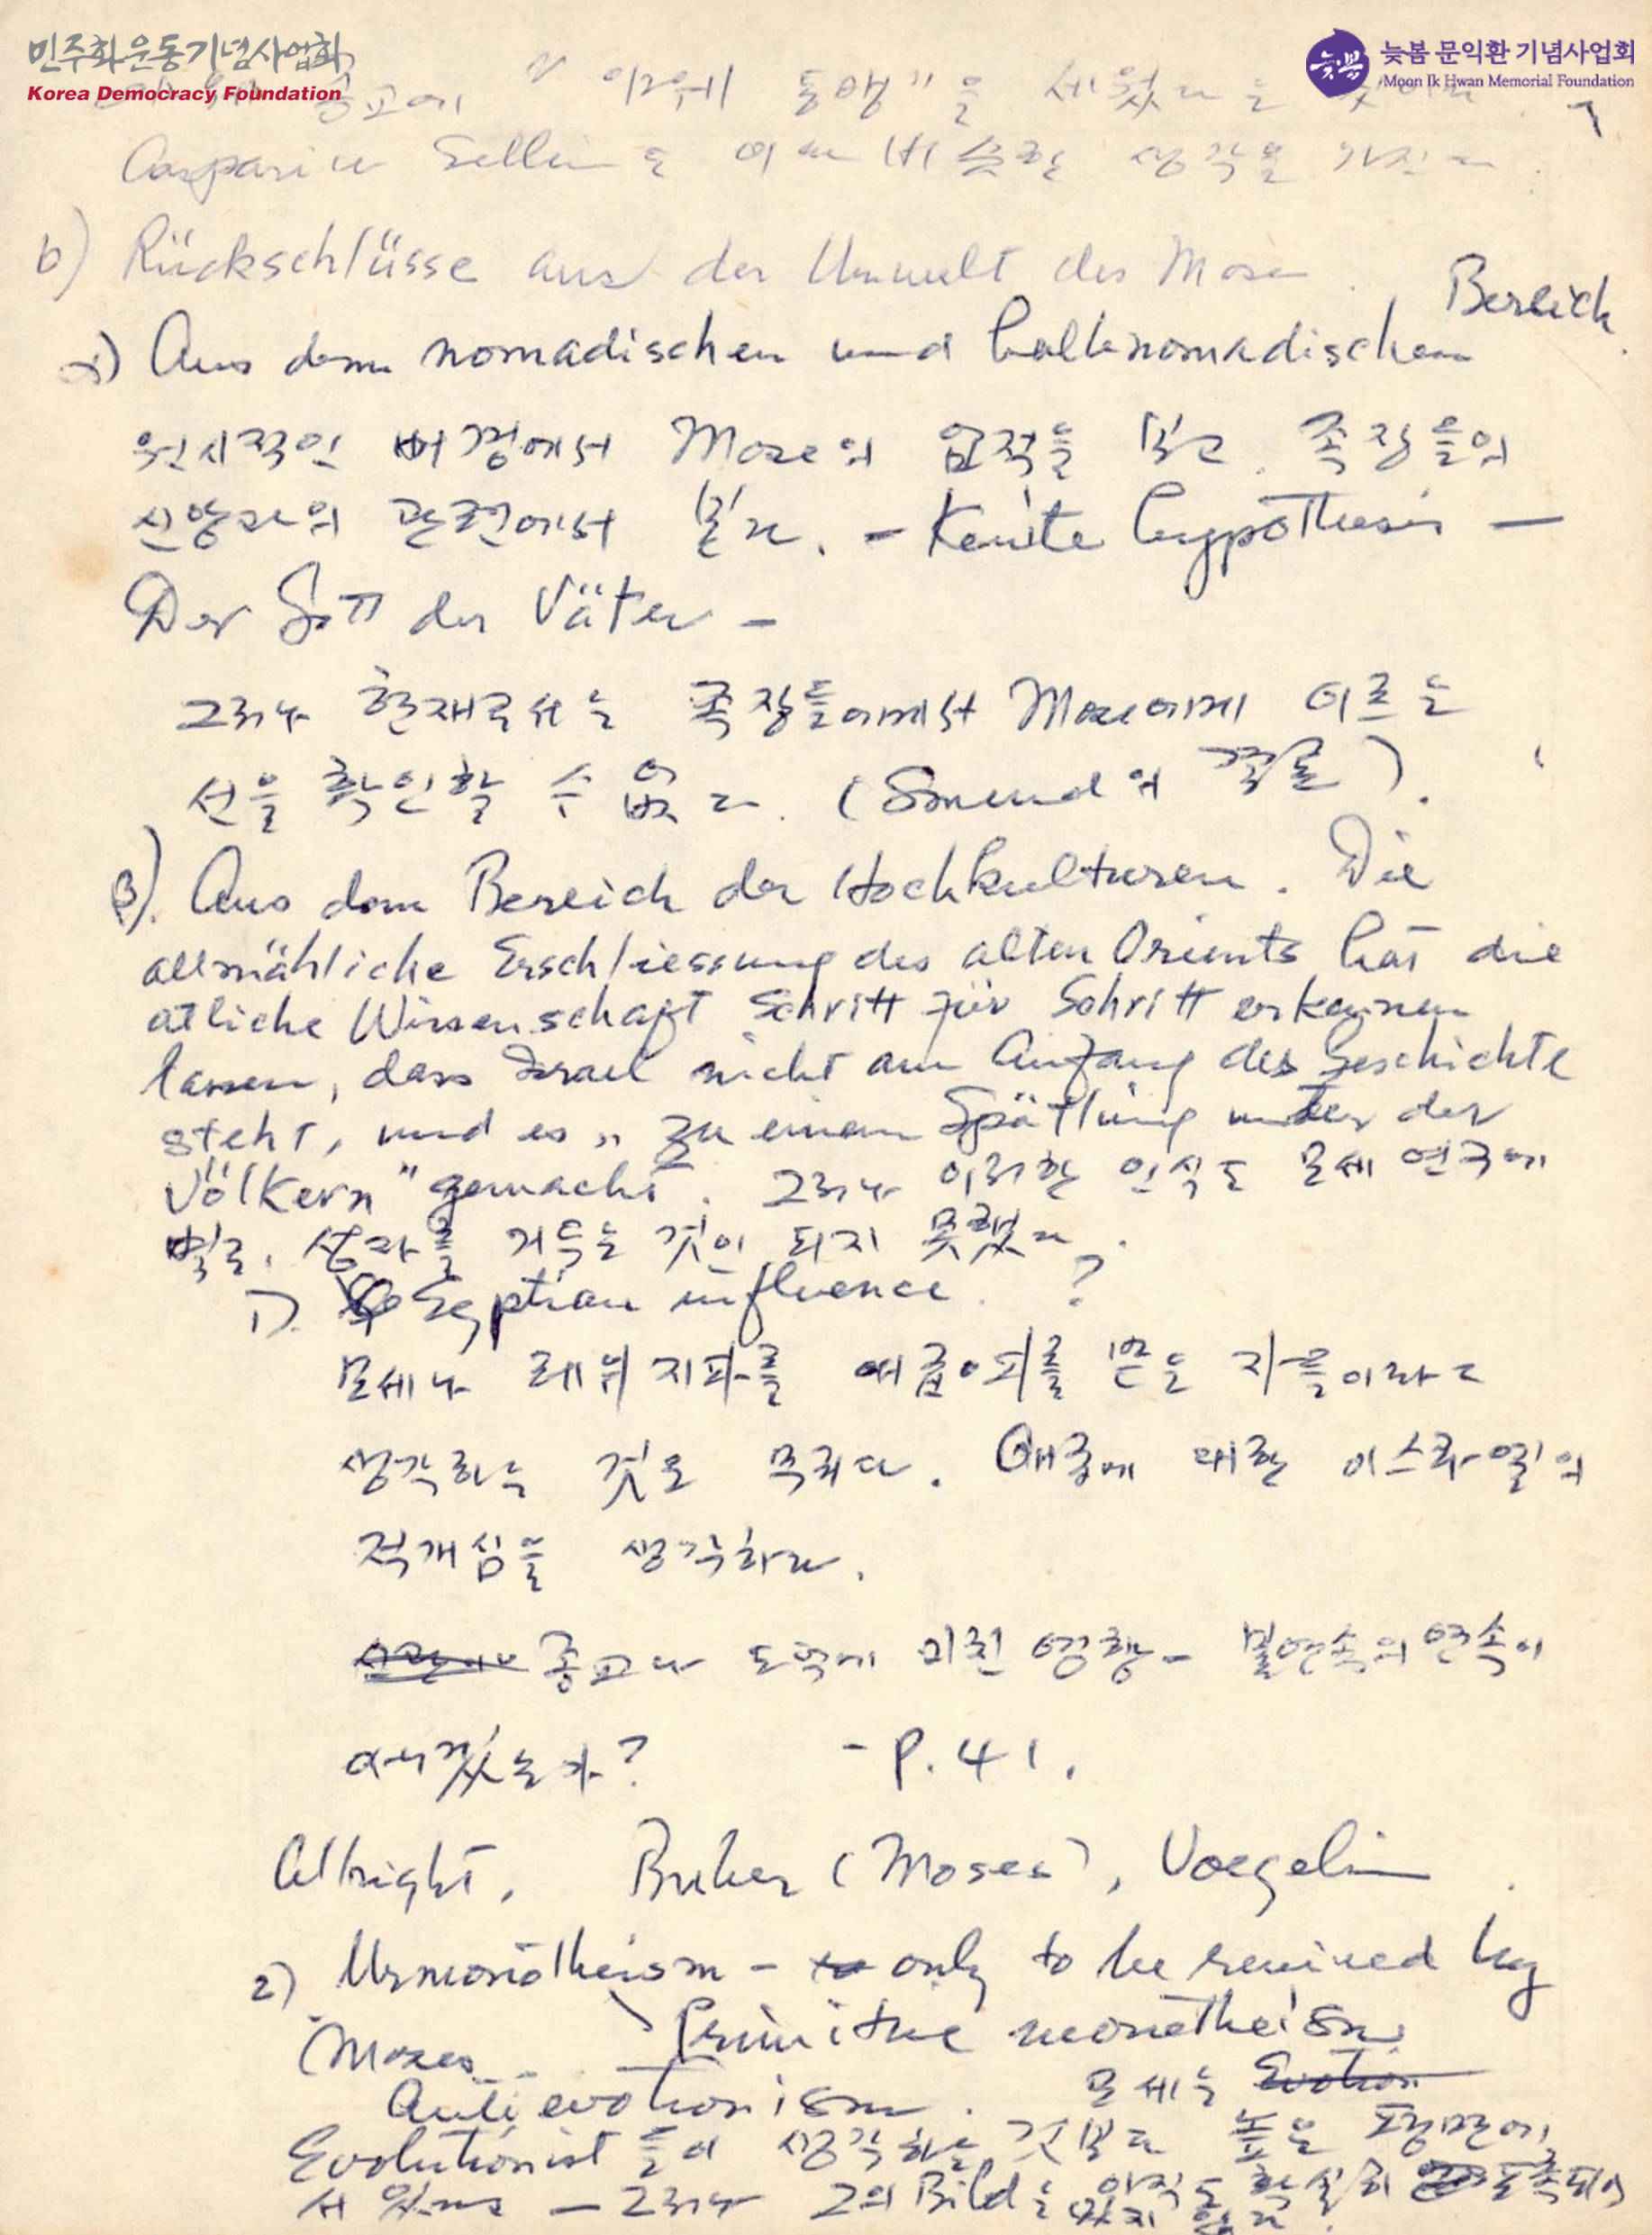 민주화운동기념사업회
Korea Democracy Foundation
늦봄
늦봄 문익환 기념사업회
Moon Ik Hwan Memorial Foundation
종교에 "야웨 동맹"을 세웠다는 것이다 7
Caspari u Sellin도 이와 비슷한 생각을 가진다.
b) Rückschlüsse aus der Umwelt des Mose.
α) Aus dem nomadischen und halbnomadischen Bereich.
원시적인 배경에서 Mose의 업적을 보고. 족장들의
신앙과의 관련에서 본다. - Kenite hypothesis -
Der Gott der Väter -
그러나 현재로서는 족장들에게서 Mose에게 이르는
선을 확인할 수 없다. (Smend의 결론).
β). Aus dem Bereich der Hochkulturen. Die
allmähliche Erschliessung des alten Orients hat die
atliche Wissenschaft Schritt für Schritt erkennen
lassen, dass Israel nicht am Anfang des Geschichte
steht, und es „ zu einem Spätling unter der
Völkern" gemacht. 그러나 이러한 인식도 모세 연구에
별로. 성과를 거두는 것이 되지 못했다.
1). Egyptian influence. ?
모세나 레위지파를 애급이피를 받은 자들이라고
생각하는 것도 무리다. 애굽에 대한 이스라엘의
적개심을 생각하라.
종교나 도덕에 미친 영향 - 불연속의 연속이
아니겠는가? - P. 41.
Albright, Buber (Moses), Voegelin.
2) Urmonotheism - only to be revived by
Moses. Primitive monotheism
Anti evotionism. 모세는 Evotion
Evolutionist들이 생각하는 것보다 높은 평면에
서 있다 - 그러나 그의 Bild는 아직도 확실히 포촉되어
있지 않다.